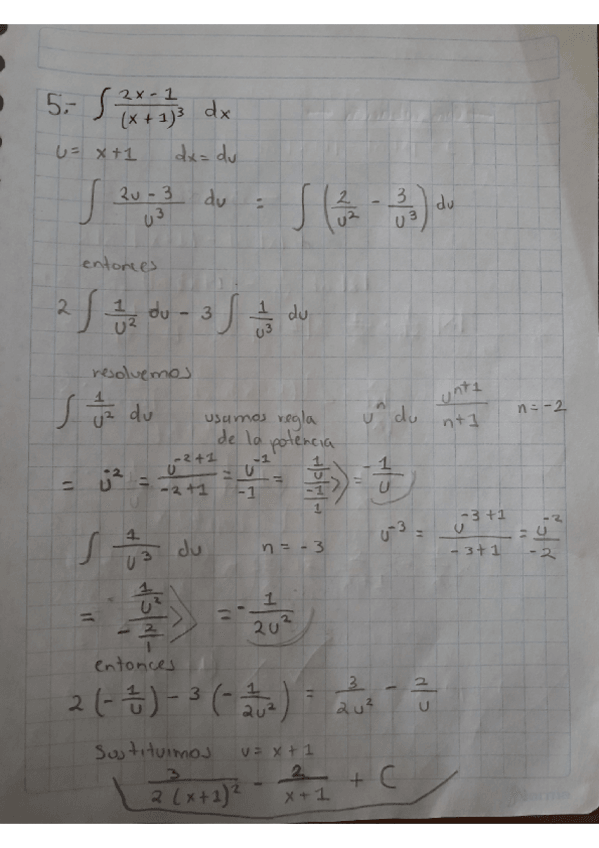 5.- ∫ (2x - 1)/(x + 1)³ dx
u = x+1 dx = du
∫ (2u - 3)/u³ du = ∫ (2/u² - 3/u³) du
entonces
2 ∫ 1/u² du - 3 ∫ 1/u³ du
resolvemos
∫ 1/u² du usamos regla de la potencia uⁿ du uⁿ⁺¹/(n+1) n = -2
= u⁻² = u⁻²⁺¹/(-2+1) = u⁻¹/-1 = (1/u)/(-1/1) = -1/u
∫ 1/u³ du n = -3 u⁻³ = u⁻³⁺¹/(-3+1) = u⁻²/-2
= (1/u²)/(-2/1) = -1/(2u²)
entonces
2(-1/u) - 3(-1/(2u²)) = 3/(2u²) - 2/u
Sustituimos u = x + 1
3/(2(x+1)²) - 2/(x+1) + C